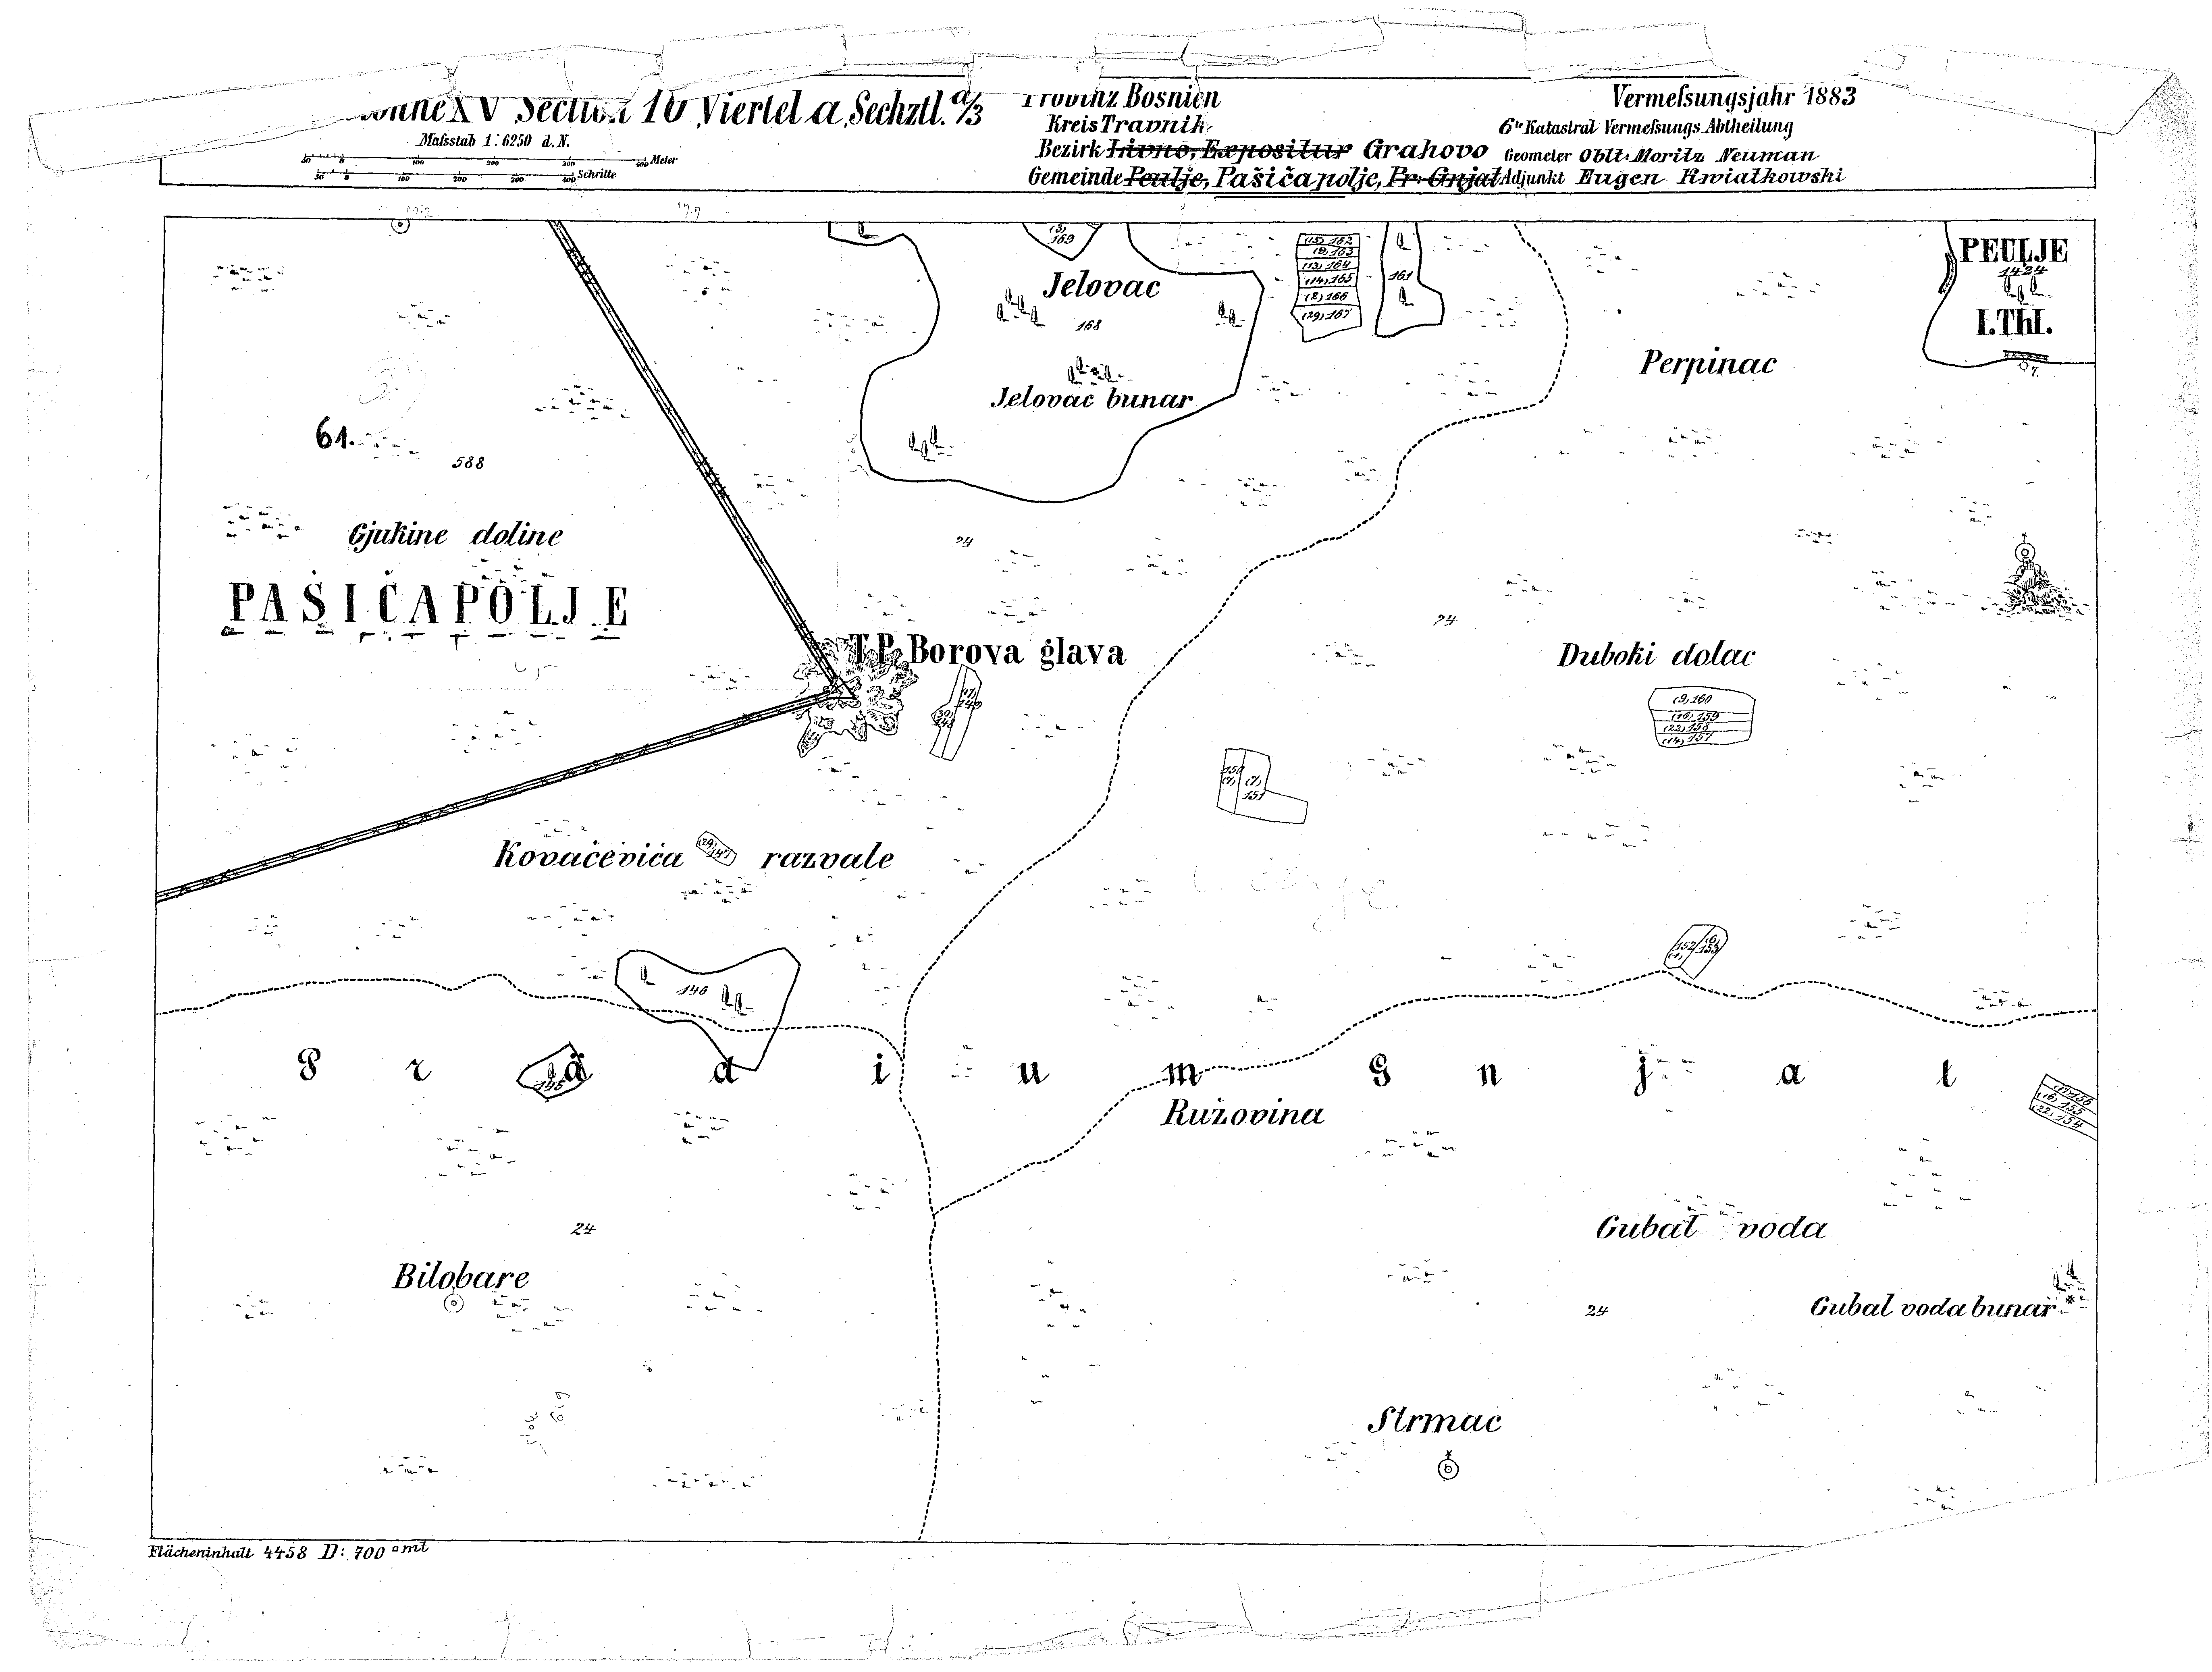 XV Section 10 Viertel a, Sechztl. a/3
Maſsstab 1:6250 d. N.
50 0 100 200 300 400 Meter
50 0 100 200 300 400 Schritte
Provinz Bosnien
Kreis Travnik
Bezirk Livno, Expositur Grahovo
Gemeinde Peulje, Pašićapolje, Pr. Gnjat
Vermeſsungsjahr 1883
6te Katastral Vermeſsungs Abtheilung
Geometer Oblt: Moritz Neuman
Adjunkt Eugen Kwiatkowski
PEULJE
1424
I.Thl.
(3)
169
(15) 162
(9) 163
(13) 164
(14) 165
(2) 166
(29) 167
161
Jelovac
168
Jelovac bunar
Perpinac
61.
588
Gjukine doline
PAŠIĆAPOLJE
24
24
T.P. Borova glava
(7)
149
(30)
148
Duboki dolac
(9) 160
(16) 159
(22) 158
(14) 157
150
(7)
(7)
151
Kovačevića razvale
(29)
147
152
(6)
153
146
Pradium Gnjat
145
Ružovina
(7) 156
(16) 155
(22) 154
24
Gubal voda
Bilobare
24
Gubal voda bunar
Strmac
Flächeninhalt 4458 D: 700 □mt